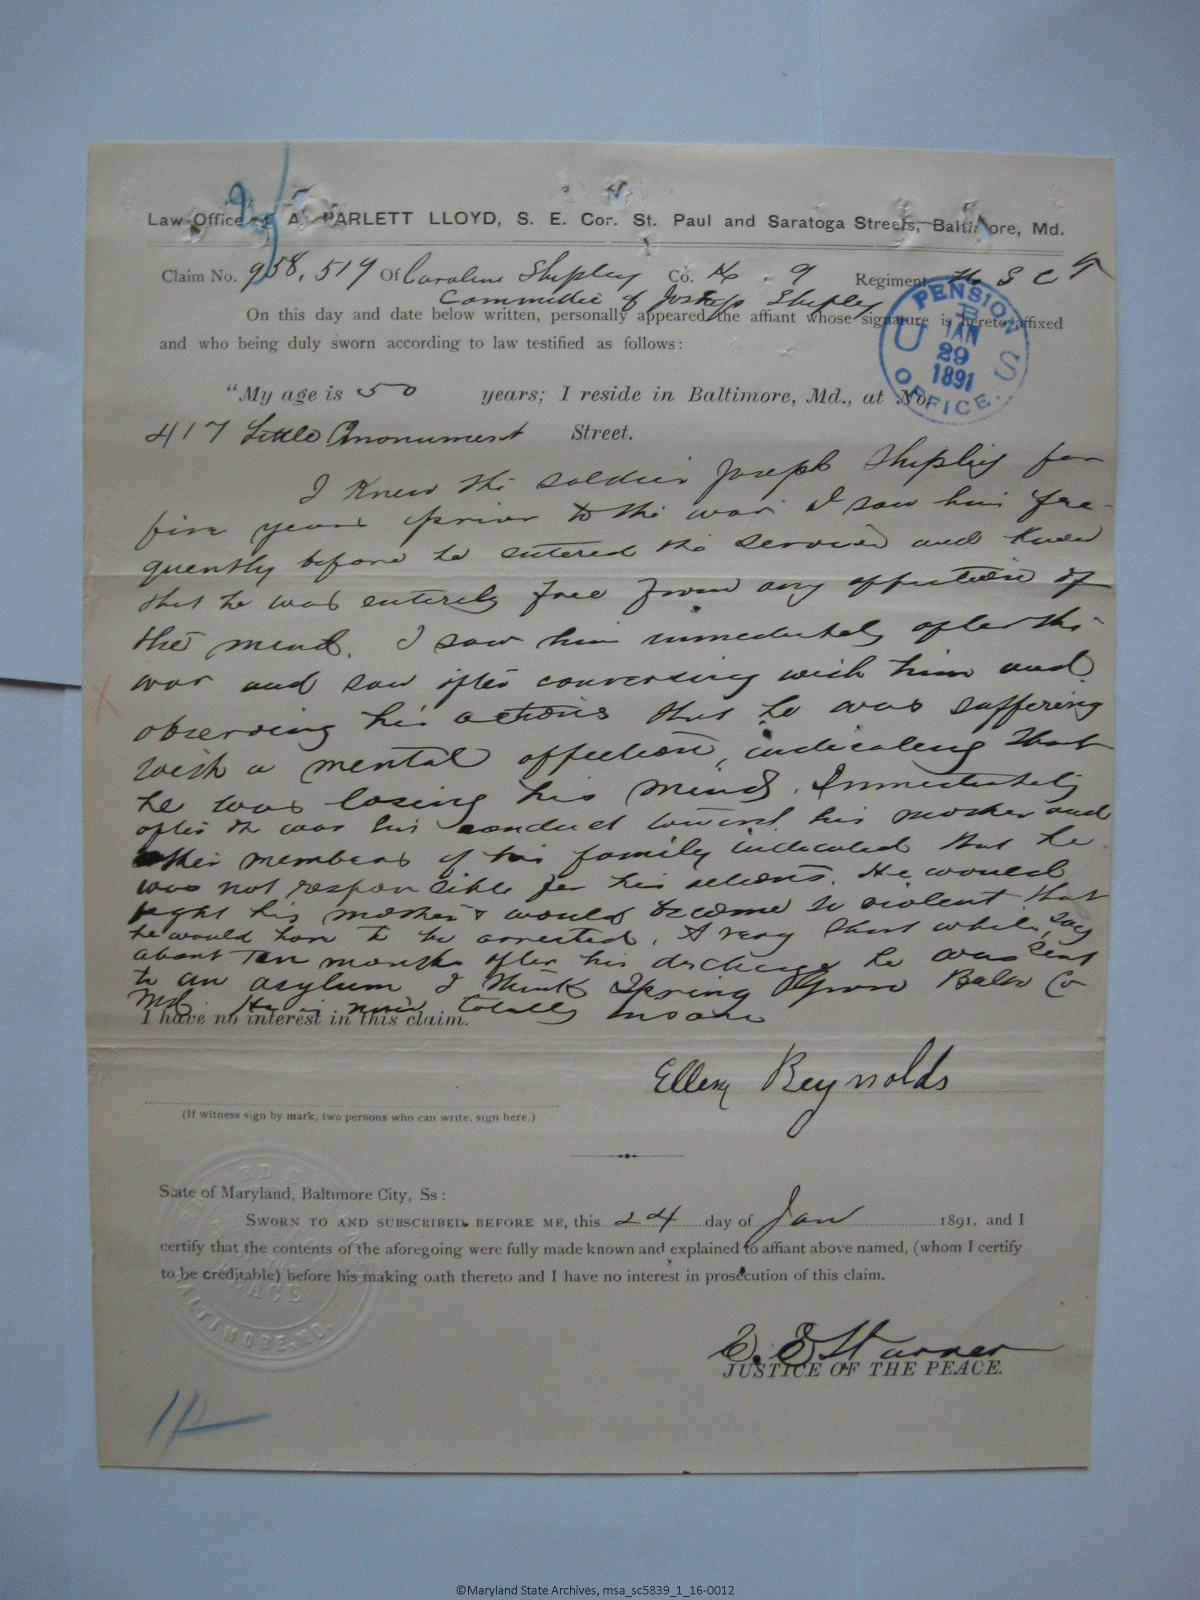 Law Office of A. PARLETT LLOYD, S. E. Cor. St. Paul and Saratoga Streets, Baltimore, Md.
Claim No. 958,519 Of Caroline Shipley Co. H. 9 Regiment U S C T
Committee of Joseph Shipley
On this day and date below written, personally appeared the affiant whose signature is hereto affixed
and who being duly sworn according to law testified as follows:
PENSION
U JAN S
29
1891
OFFICE.
"My age is 50 years; I reside in Baltimore, Md., at No.
417 Little Monument Street.
I knew the soldier Joseph Shipley for
five years prior to the war I saw him fre-
quently before he entered the service and knew
that he was entirely free from any affection of
the mind. I saw him immediately after the
war and saw after conversing with him and
observing his actions that he was suffering
with a mental affection, indicating that
he was losing his mind. Immediately
after the war his conduct toward his mother and
other members of his family indicated that he
was not responsible for his actions. He would
fight his mother & would become so violent that
he would have to be arrested. A very short while, say
about ten months after his discharge he was sent
to an asylum I think Spring Grove Balto Co
Md. He is now totally insane
I have no interest in this claim.
Ellen Reynolds
(If witness sign by mark, two persons who can write, sign here.)
State of Maryland, Baltimore City, Ss:
SWORN TO AND SUBSCRIBED BEFORE ME, this 24 day of Jan 1891, and I
certify that the contents of the aforegoing were fully made known and explained to affiant above named, (whom I certify
to be creditable) before his making oath thereto and I have no interest in prosecution of this claim.
PEACE
BALTIMORE, MD.
JUSTICE OF THE PEACE.
©Maryland State Archives, msa_sc5839_1_16-0012